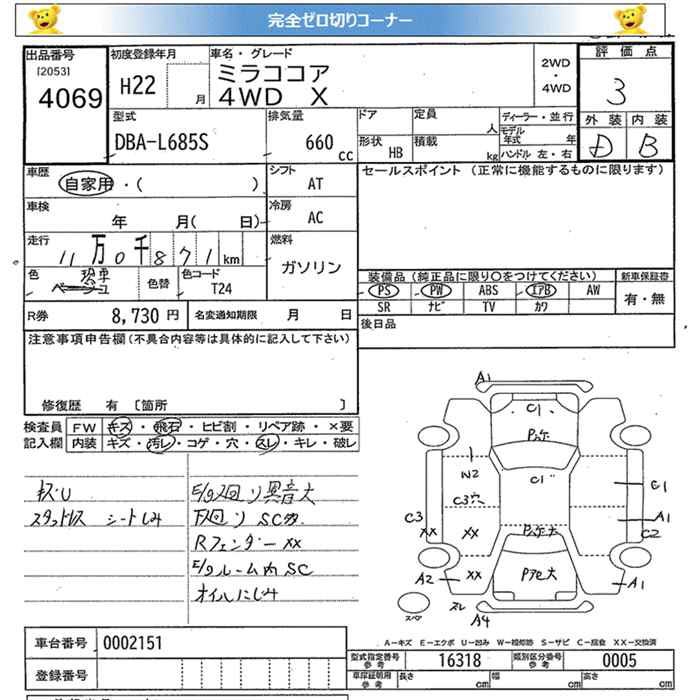 完全ゼロ切りコーナー
出品番号
[2053]
4069
初度登録年月
H22 月
車名・グレード
ミラココア
4WD X
2WD
・
4WD
評価点
3
外装 内装
D B
型式
DBA-L685S
排気量
660 cc
ドア
定員
人
形状
HB
積載
kg
ディーラー・並行
モデル年式 年
ハンドル 左・右
車歴
自家用・( )
シフト
AT
セールスポイント (正常に機能するものに限ります)
車検
年 月( 日)
冷房
AC
走行
11万0千871km
燃料
ガソリン
色
ベージュ
色替
色コード
T24
装備品(純正品に限り○をつけてください)
PS PW ABS エアB AW
SR ナビ TV カワ
新車保証書
有・無
R券
8,730 円
名変通知期限 月 日
後日品
注意事項申告欄(不具合内容等は具体的に記入して下さい)
修復歴 有 [箇所 ]
検査員
記入欄
FW キズ・飛石・ヒビ割・リペア跡・×要
内装 キズ・汚レ・コゲ・穴・スレ・キレ・破レ
キズU
スタットレス シートしみ
E/g廻リ異音大
下廻リSC有
Rフェンダーxx
E/gルーム内SC
オイルにじみ
A1
C1
W2
C3穴
C1
C3
xx
xx
C1
A1
C2
A2
xx
A1
スレ
A4
スペア
車台番号
0002151
登録番号
A-キズ E-エクボ U-凹み W-補修跡 S-サビ C-腐食 XX-交換済
型式指定番号
参考
16318
類別区分番号
参考
0005
車庫証明用
参考
長さ cm
幅 cm
高さ cm